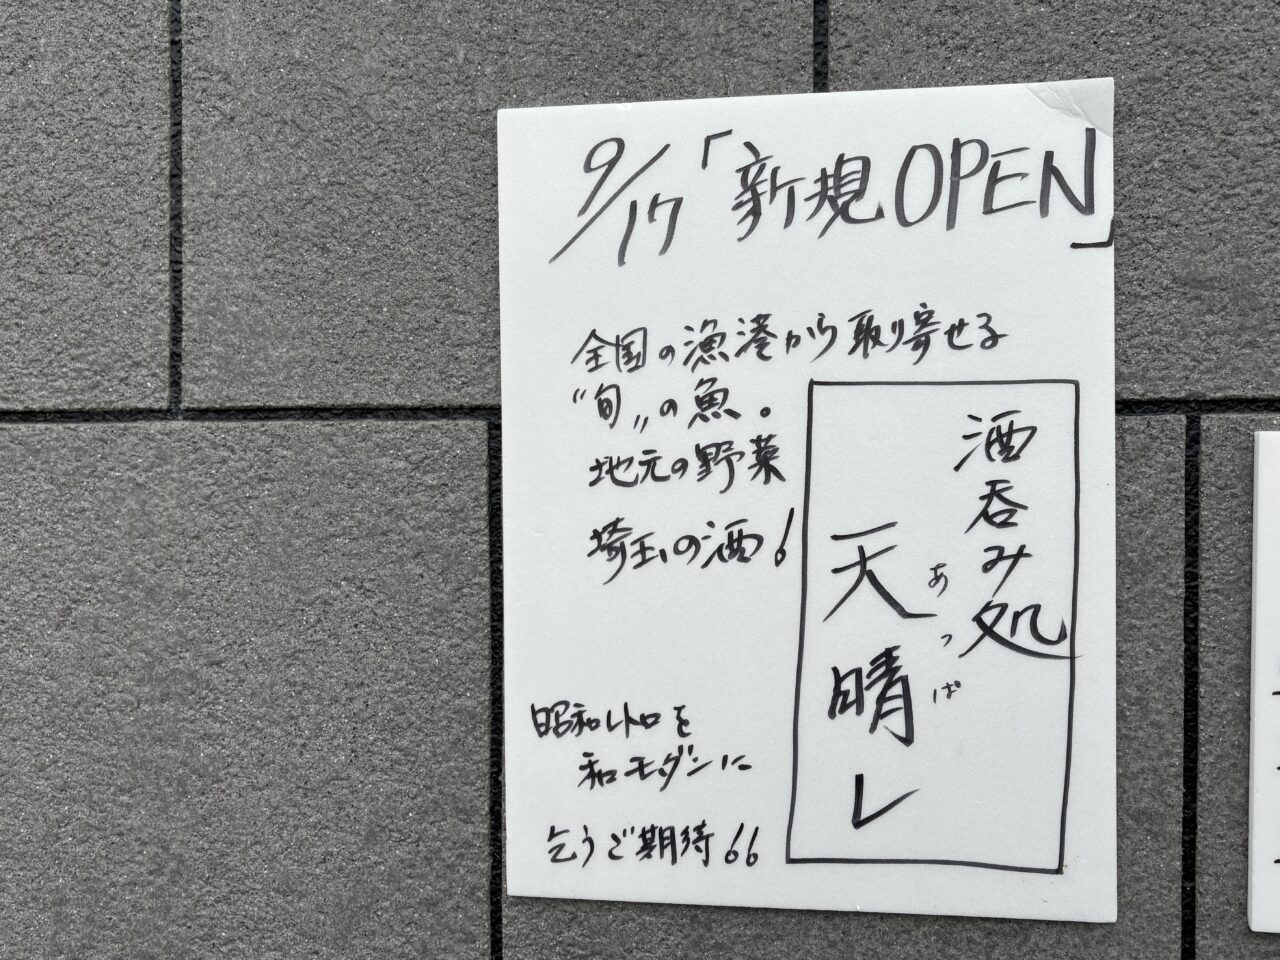 9/17「新規OPEN」
全国の漁港から取り寄せる
"旬"の魚。
地元の野菜
埼玉の酒!
酒呑み処
天晴レ
あっぱ
昭和レトロを
和モダンに
乞うご期待!!